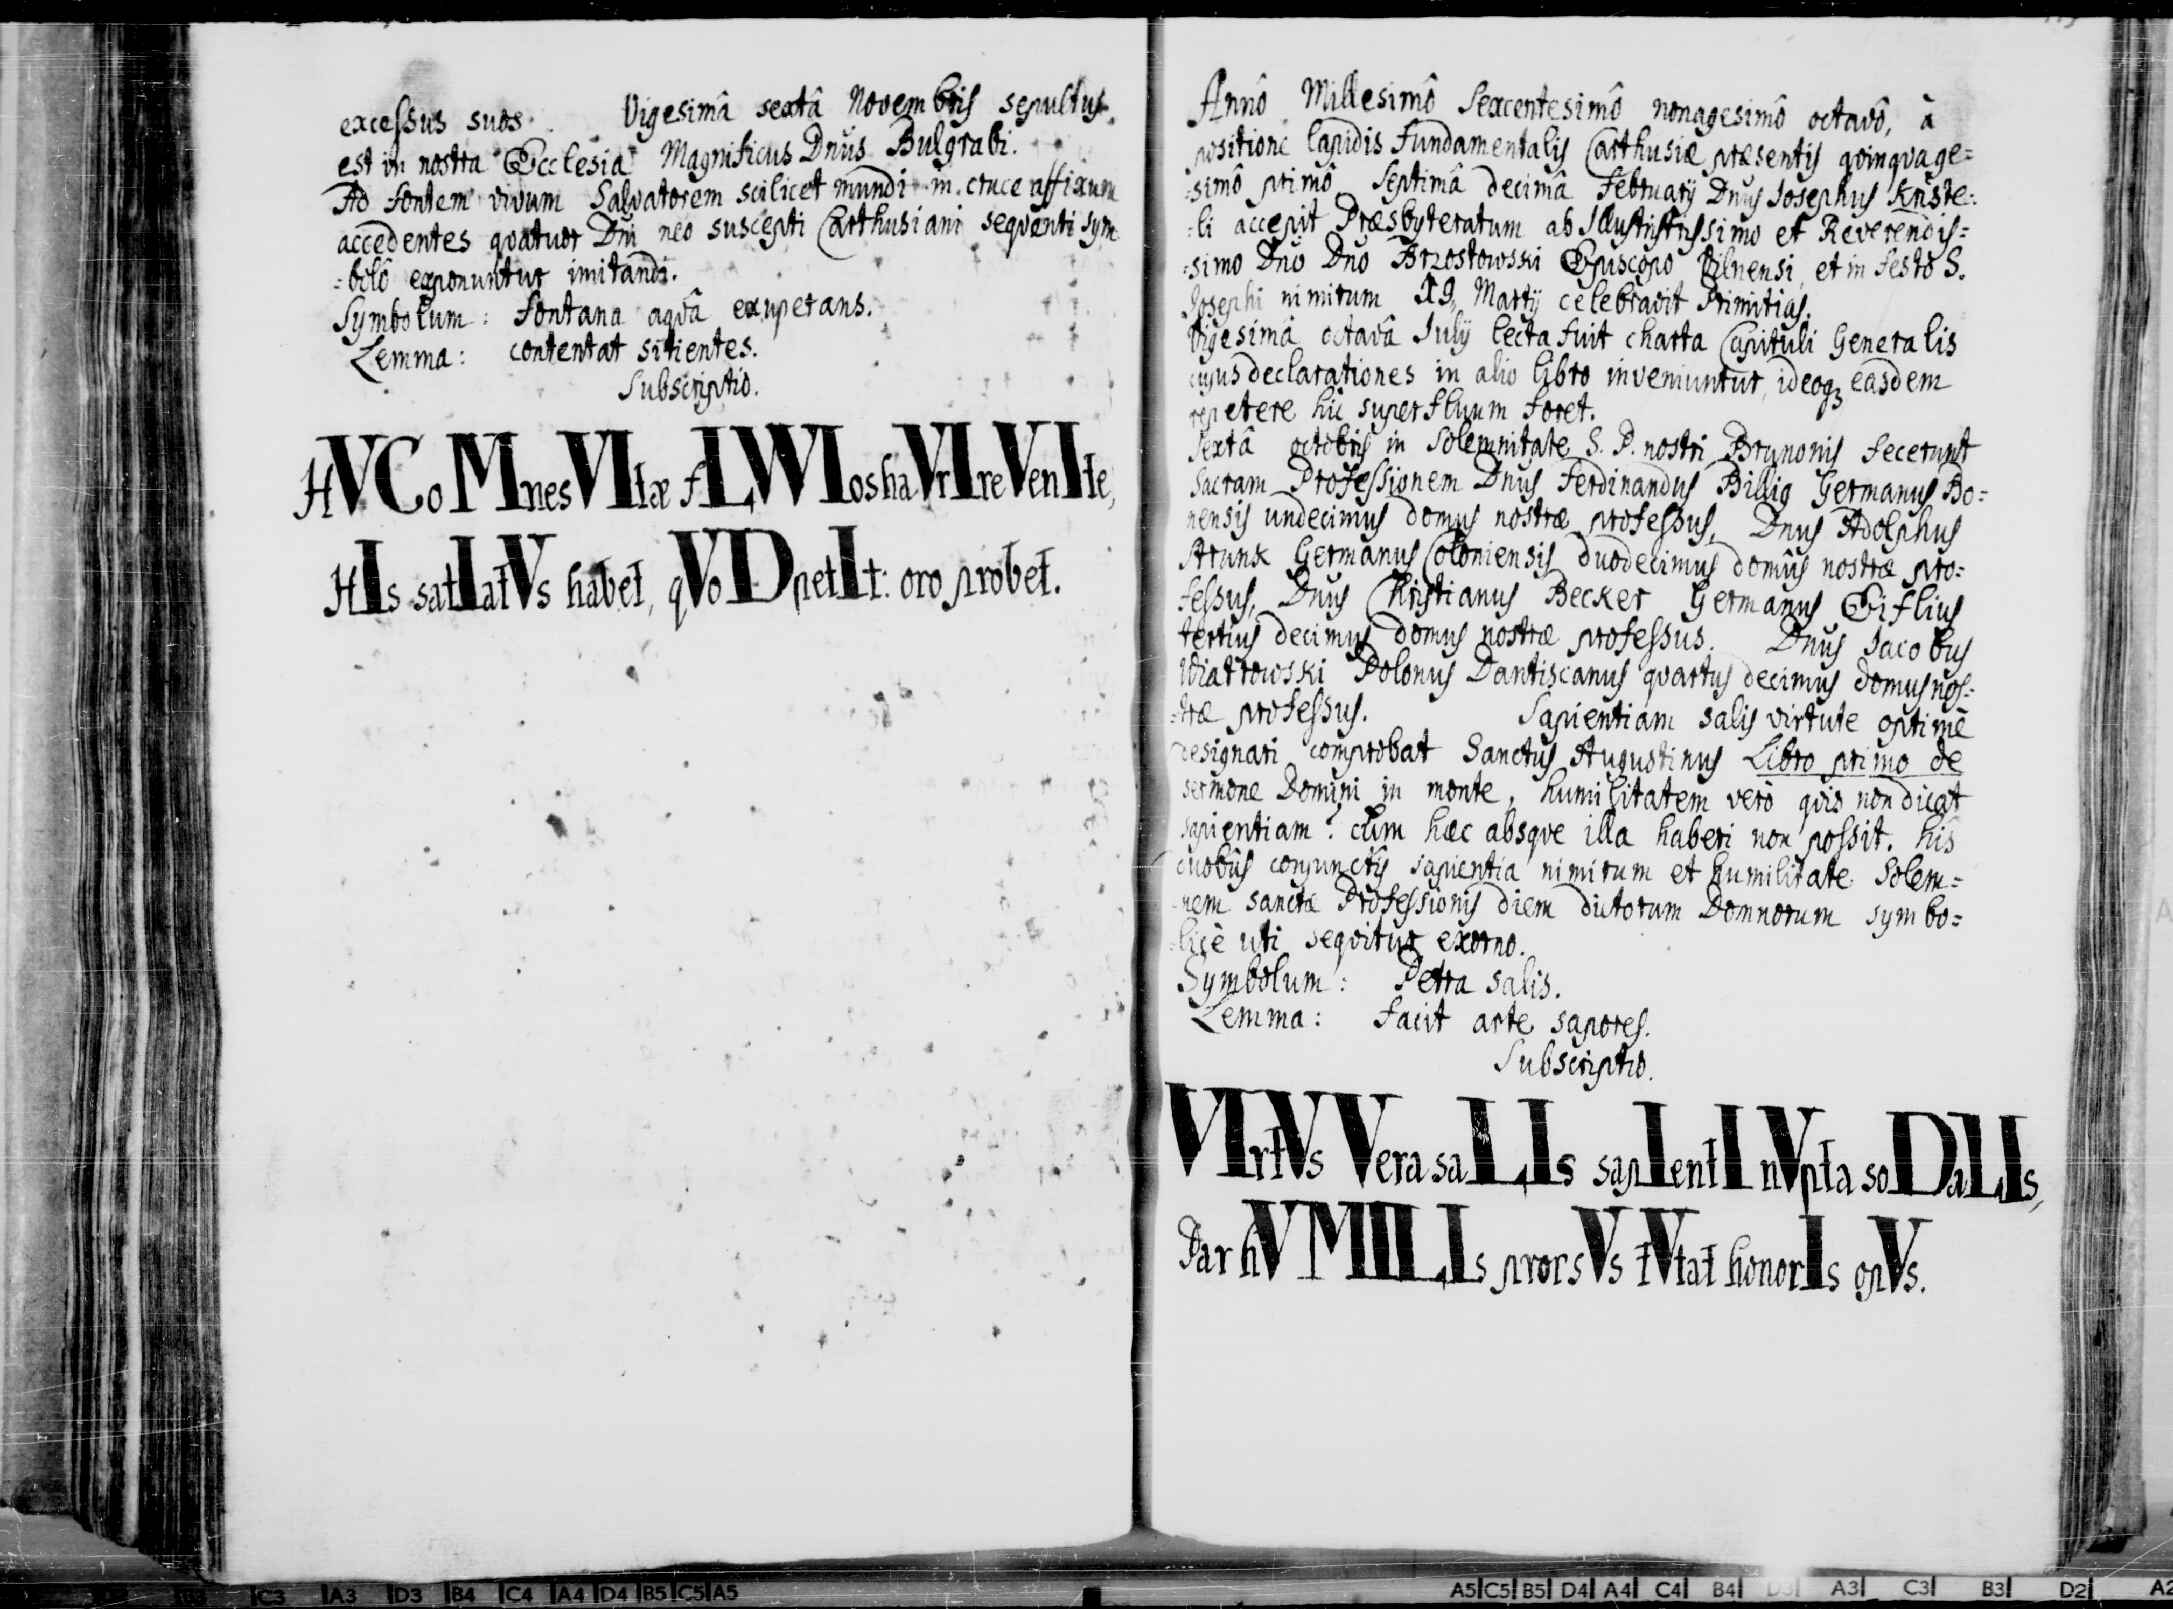 excessus suos. Vigesimâ sextâ Novembris sepultus
est in nostra Ecclesia Magnificus Dnus Bulgrabi.
Ad fontem vivum Salvatorem scilicet mundi in cruce affixum
accedentes qvatuor Dni neo suscepti Carthusiani seqventi sym
=bolô exponuntur imitandi.
Symbolum: fontana aqvâ exuperans.
Lemma: contentat sitientes.
Subscriptio.
HVC oMnes VItæ fLVVIos haVrIre VenIte,
HIs satIatVs habet, qVoD petIt: oro probet.
Annô Millesimô Sexcentesimô nonagesimô octavô, à
positione lapidis fundamentalis Carthusiæ præsentis qvinqvage=
=simô primô Septimâ decimâ Februarij Dnus Josephus Kriste=
=li accepit Præsbyteratum ab Illustristrissimo et Reverendis=
=simo Dno Dno Brzostowski Episcopo Vilnensi, et in festo S.
Josephi nimirum 19 Martij celebravit Primitias.
Vigesimâ octavâ Julij lecta fuit charta Capituli Generalis
cujus declarationes in alio libro inveniuntur, ideoq3 easdem
repetere hic superfluum foret.
Sextâ octobris in Solemnitate S. P. nostri Brunonis fecerunt
Sacram Professionem Dnus Ferdinandus Billig Germanus Bo=
nensis undecimus domus nostræ professus, Dnus Adolphus
Strunk Germanus Coloniensis duodecimus domûs nostræ pro=
fessus, Dnus Christianus Becker Germanus Eiflius
tertius decimus domus nostræ professus. Dnus Jacobus
Wiatrowski Polonus Dantiscanus qvartus decimus domus nos=
=træ professus. Sapientiam salis virtute optimè
designari comprobat Sanctus Augustinus Libro primo de
sermone Domini in monte, humilitatem verò qvis non dicat
sapientiam? cùm hæc absqve illa haberi non possit. his
duobus conjunctis sapientia nimirum et humilitate Solem=
nem sanctæ Professionis diem dictorum Domnorum symbo=
=licè uti seqvitur exorno.
Symbolum: Petra salis.
Lemma: facit arte sapores.
Subscriptio.
VIrtVs Vera saLIs sapIentI nVpta soDaLIs,
Par hVMILIs prorsVs tVtat honorIs opVs.